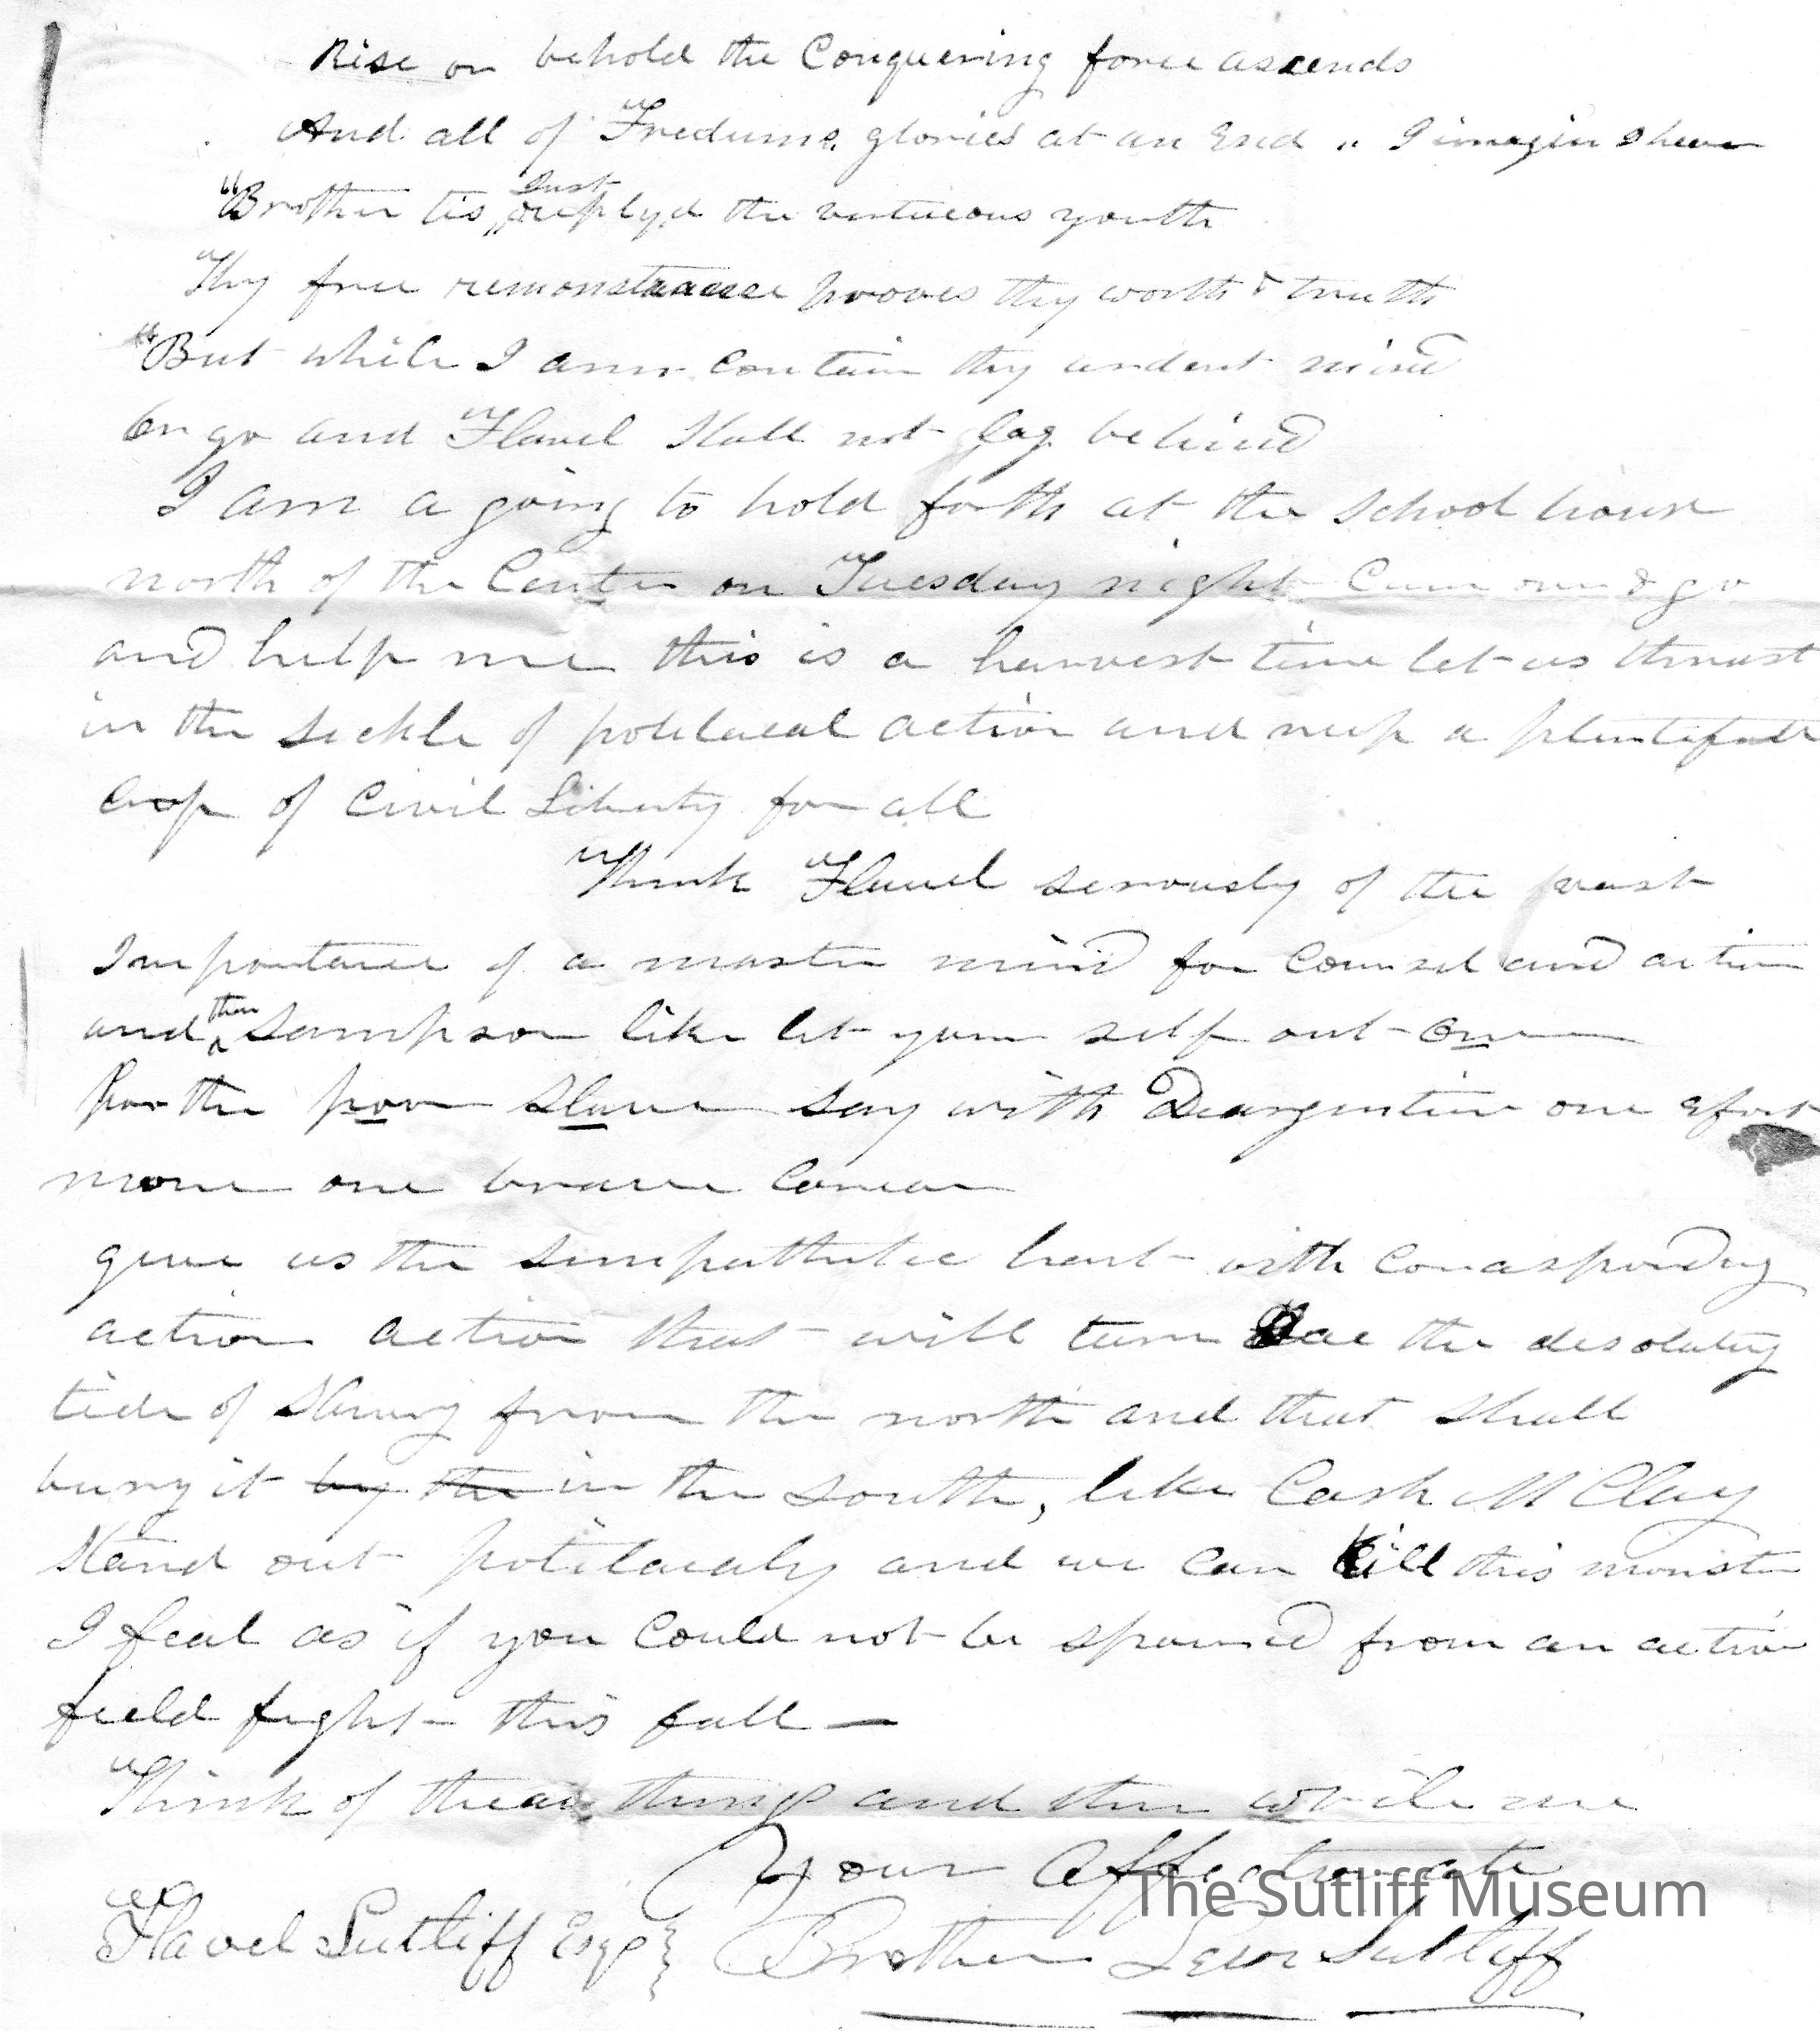 Rise or behold the Conquering force ascends
And all of Fredums glories at an End " I imagin I hear
"Brother tis Just replyd the vertueous youth
Thy free remonstrance prooves thy worth & truth
"But while I am contain thy ardent mind
On go and Flavel Shall not Lag behind
I am a going to hold forth at the School house
north of the Center on Tuesday night Cum on & go
and help me this is a harvest time let us thrust
in the Sickle of polilacal action and reep a plentifull
Crop of Civil Liberty for all
Think Flavel seriously of the vast
Importance of a master mind for Counsel and action
and then Sampson like let your self out One
For the poor Slave Say with Deargentine one efort
more one brave Carear
give us the Simpathetic heart with Conasponding
action action that will turn the desolating
tide of Slavery from the north and that shall
bury it by the in the South, like Cash M Clay
Stand out polilacaly and we can Kill this monster
I feal as if you Could not be spared from an action
field fight this fall —
Think of these things and then write me
Your Affectionate
Flavel Sutliff Esqr } Brother Levi Sutliff
The Sutliff Museum